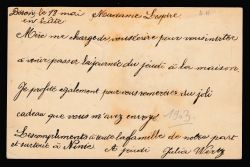 Dison, le 13 mai Madame Lapire
en hâte
Mère me charge de vous écrire pour vous inviter
à venir passer la journée du jeudi à la maison
Je profite également pour vous remercier du joli
cadeau que vous m'avez envoyé
1903
Les compliments à toute la famille de notre part
et surtout à Ninie A jeudi Julia Wertz